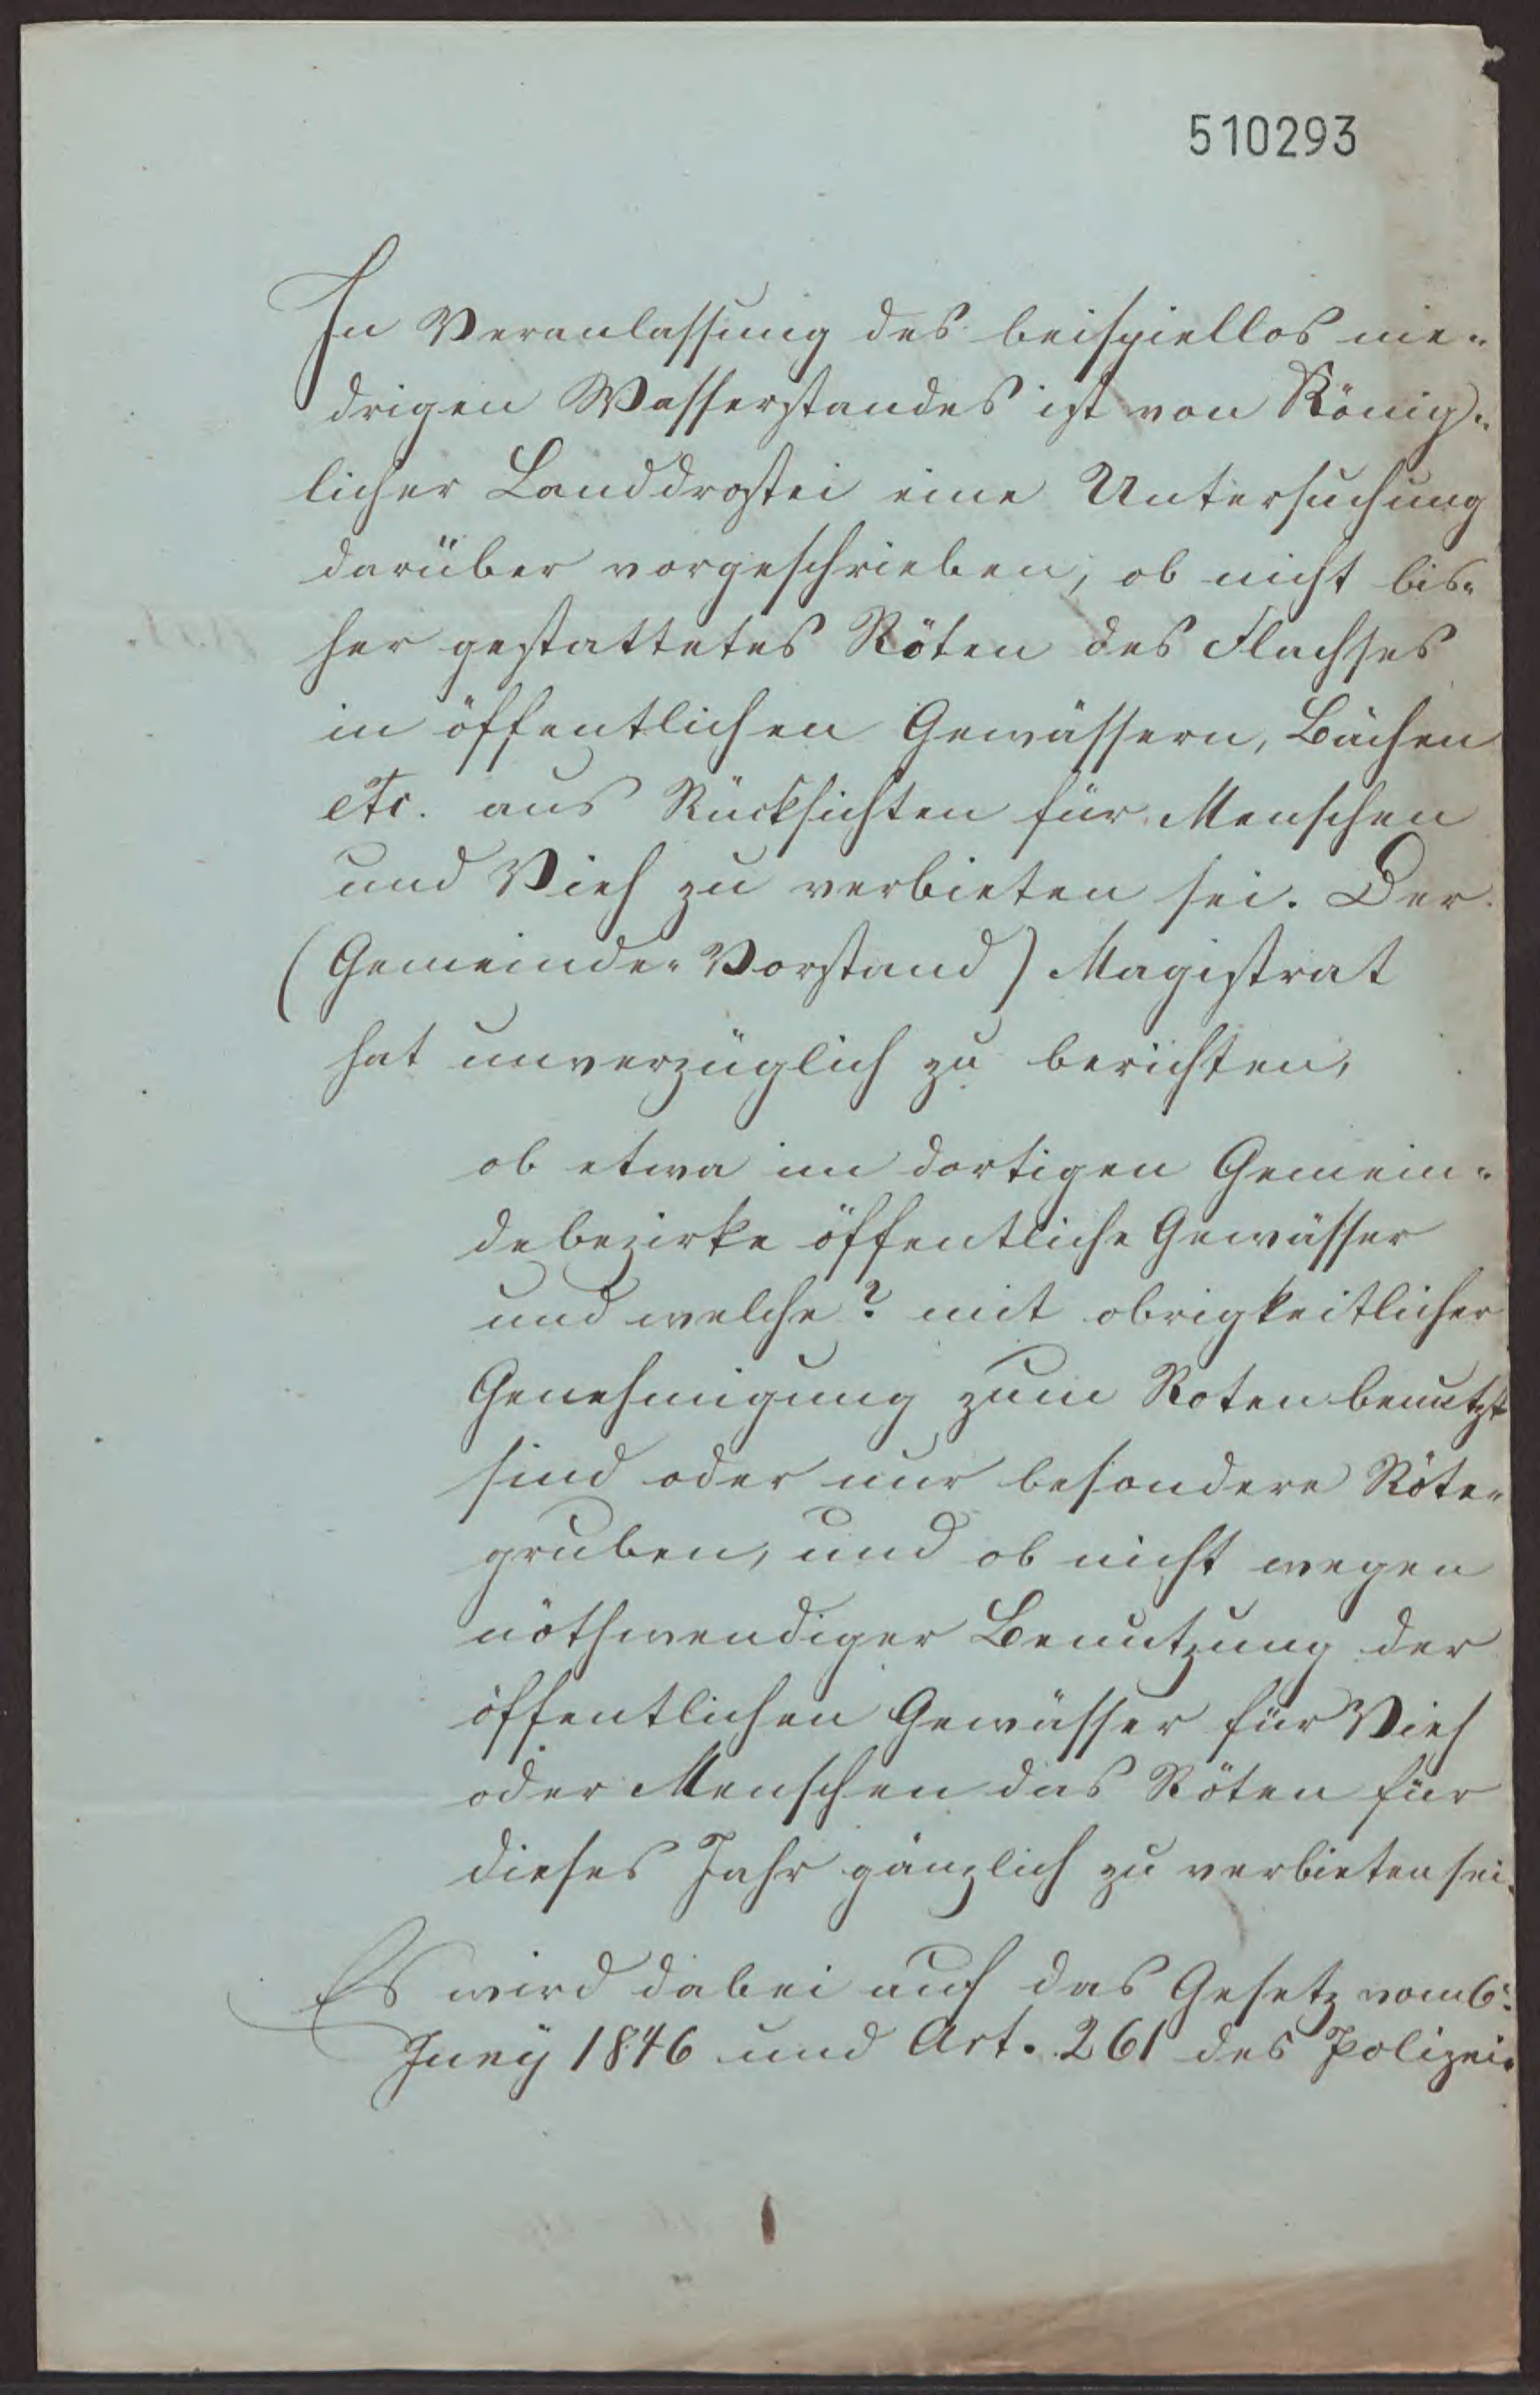 510293
In Veranlassung des beispiellos nie-
drigen Wasserstandes ist von König-
licher Landdrostei eine Untersuchung
darüber vorgeschrieben, ob nicht bis-
her gestattetes Röten des Flachses
in öffentlichen Gewässern, Bächen
etc. aus Rücksichten für Menschen
und Vieh zu verbieten sei. Der
(Gemeinde-Vorstand) Magistrat
hat unverzüglich zu berichten,
ob etwa im dortigen Gemein-
debezirke öffentliche Gewässer
und welche? mit obrigkeitlicher
Genehmigung zum Roten benutzt
sind oder nur besondere Röte-
gruben, und ob nicht wegen
nöthwendiger Benutzung der
öffentlichen Gewässer für Vieh
oder Menschen das Röten für
dieses Jahr gänzlich zu verbieten sei.
Es wird dabei auf das Gesetz vom 6t.
Juny 1846 und Art. 261 des Polizei-